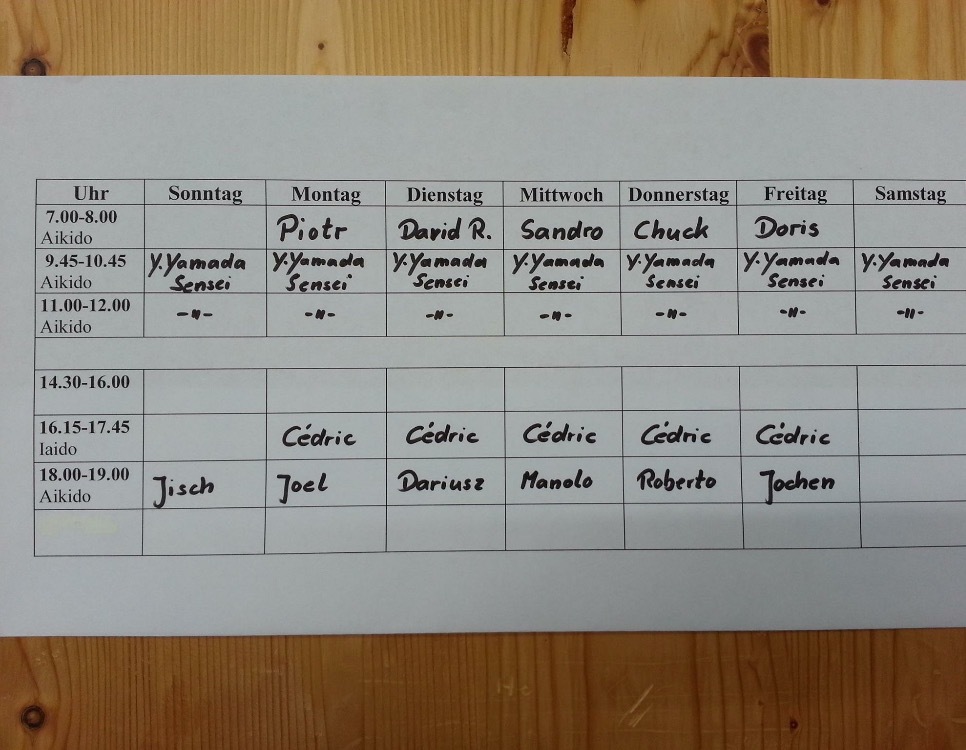 Uhr Sonntag Montag Dienstag Mittwoch Donnerstag Freitag Samstag
7.00-8.00
Aikido
Piotr David R. Sandro Chuck Doris
9.45-10.45
Aikido
Y.Yamada Y.Yamada Y.Yamada Y.Yamada Y.Yamada Y.Yamada Y.Yamada
Sensei Sensei Sensei Sensei Sensei Sensei Sensei
11.00-12.00
Aikido
-"- -"- -"- -"- -"- -"- -"-
14.30-16.00
16.15-17.45
Iaido
Cédric Cédric Cédric Cédric Cédric
18.00-19.00
Aikido
Jisch Joel Dariusz Manolo Roberto Jochen